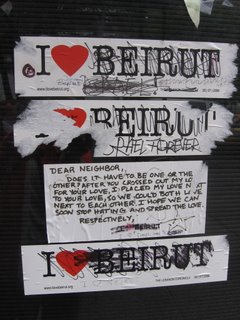 I ♥ BEIRUT
www.ilovebeirut.org
BEIRUT
FOREVER
DEAR NEIGHBOR,
DOES IT HAVE TO BE ONE OR THE
OTHER? AFTER YOU CROSSED OUT MY LO
FOR YOUR LOVE, I PLACED MY LOVE N XT
TO YOUR LOVE, SO WE COULD BOTH L VE
NEXT TO EACH OTHER. I HOPE WE CAN
SOON STOP HATING AND SPREAD THE LOVE.
RESPECTFULLY,
I ♥ BEIRUT
I ♥ BEIRUT